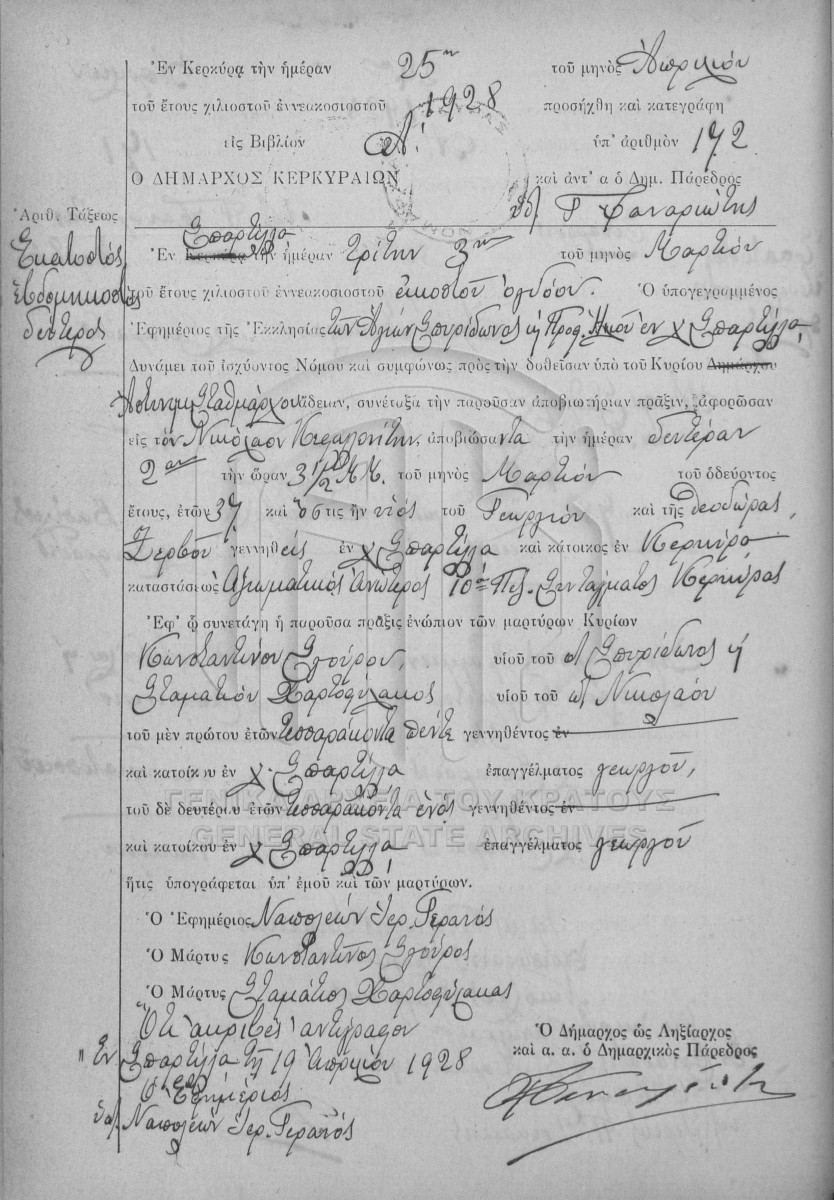 Ἐν Κερκύρᾳ τὴν ἡμέραν 25ην τοῦ μηνὸς Ἀπριλίου
τοῦ ἔτους χιλιοστοῦ ἐννεακοσιοστοῦ 1928 προσήχθη καὶ κατεγράφη
εἰς Βιβλίον Α! ὑπ' ἀριθμὸν 172
Ο ΔΗΜΑΡΧΟΣ ΚΕΡΚΥΡΑΙΩΝ καὶ ἀντ' α ὁ Δημ. Πάρεδρος
Γ Φαναριώτης
Ἀριθ. Τάξεως
Ἑκατοστός
ἑβδομηκοστός
δεύτερος
Σπαρτύλλα
Ἐν Κερκύρᾳ τὴν ἡμέραν τρίτην 3ην τοῦ μηνὸς Μαρτίου
τοῦ ἔτους χιλιοστοῦ ἐννεακοσιοστοῦ εἰκοστοῦ ὀγδόου. Ὁ ὑπογεγραμμένος
Ἐφημέριος τῆς Ἐκκλησίας τῶν Ἁγίων Σπυρίδωνος ἢ Προφ. Ἠλιοῦ ἐν χ Σπαρτύλλα
Δυνάμει τοῦ ἰσχύοντος Νόμου καὶ συμφώνως πρὸς τὴν δοθεῖσαν ὑπὸ τοῦ Κυρίου Δημάρχου
Ἀστυνομ Σταθμάρχου ἄδειαν, συνέταξα τὴν παροῦσαν ἀποβιωτήριαν πρᾶξιν, ἀφορῶσαν
εἰς τὸν Νικόλαον Κεφαλονίτην, ἀποβιώσαντα τὴν ἡμέραν δευτέραν
2αν τὴν ὥραν 3 1/2 Μ.Μ. τοῦ μηνὸς Μαρτίου τοῦ ὁδεύοντος
ἔτους, ἐτῶν 37 καὶ ὅστις ἦν υἱός τοῦ Γεωργίου καὶ τῆς Θεοδώρας,
Ζερβοῦ γεννηθείς ἐν χ Σπαρτύλλα καὶ κάτοικος ἐν Κερκύρα
καταστάσεως Ἀξιωματικός Ἀνώτερος 10ου Πεζ. Συντάγματος Κερκύρας
Ἐφ' ᾧ συνετάγη ἡ παροῦσα πρᾶξις ἐνώπιον τῶν μαρτύρων Κυρίων
Κωνσταντίνου Σγούρου, υἱοῦ τοῦ Σπυρίδωνος ἢ
Σταματίου Χαρτοφύλακος υἱοῦ τοῦ Νικολάου
τοῦ μὲν πρώτου ἐτῶν τεσσαράκοντα πέντε γεννηθέντος ἐν
καὶ κατοίκου ἐν χ. Σπαρτύλλα ἐπαγγέλματος γεωργοῦ,
τοῦ δὲ δευτέρου ἐτῶν τεσσαράκοντα ἑνός γεννηθέντος ἐν
ΓΕΝΙΚΑ ΑΡΧΕΙΑ ΤΟΥ ΚΡΑΤΟΥΣ
GENERAL STATE ARCHIVES
καὶ κατοίκου ἐν χ Σπαρτύλλα ἐπαγγέλματος γεωργοῦ
ἥτις ὑπογράφεται ὑπ' ἐμοῦ καὶ τῶν μαρτύρων.
Ὁ Ἐφημέριος Ναπολέων Ἱερ. Γεραπός
Ὁ Μάρτυς Κωνσταντῖνος Σγοῦρος
Ὁ Μάρτυς Σταμάτιος Χαρτοφύλακας
Ὅτι ἀκριβές ἀντίγραφον
Ἐν Σπαρτύλλα τῇ 19 Ἀπριλίου 1928
Ὁ Ἐφημέριος
Ναπολέων Ἱερ. Γεραπός
Ὁ Δήμαρχος ὡς Ληξίαρχος
καὶ α. α. ὁ Δημαρχικὸς Πάρεδρος